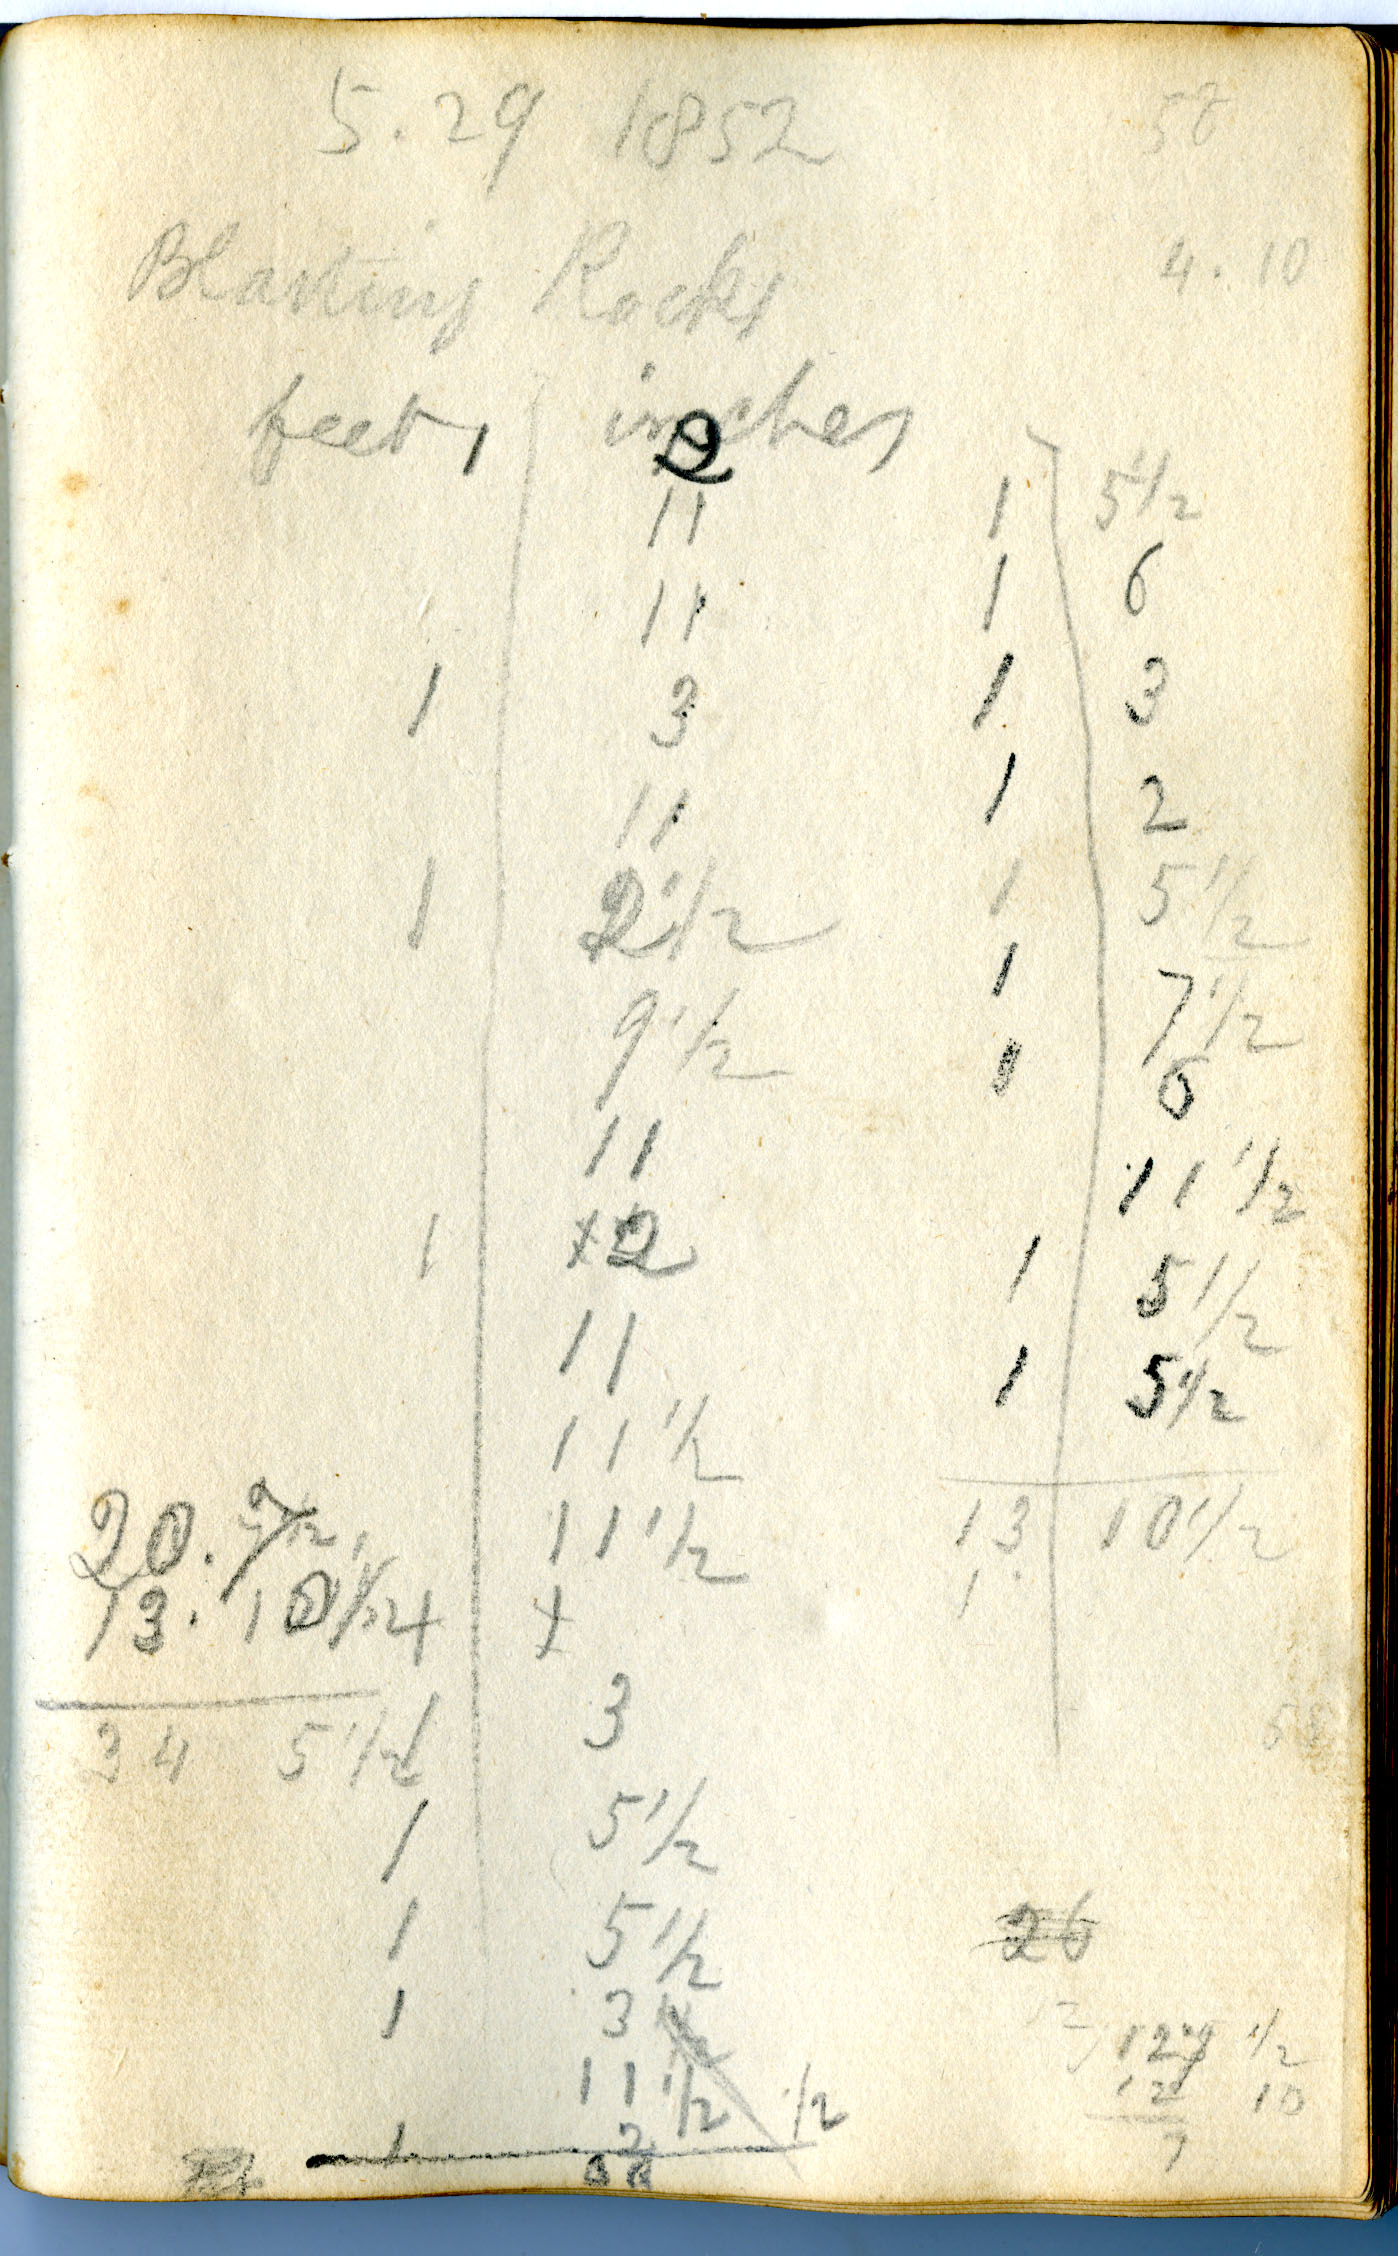 5.29 1852 58
Blasting Rocks 4.10
feet, inches
2
11
11
1 3
11
1 2 1/2
9 1/2
11
1 2
11
11 1/2
11 1/2
1 3
1 5 1/2
1 5 1/2
1 3
11 1/2 1/2
1 2
20. 7 1/2
13. 10 1/2
34 5 1/2
1 5 1/2
1 6
1 3
1 2
1 5 1/2
1 7 1/2
1 6
11 1/2
1 5 1/2
1 5 1/2
13 10 1/2
1
58
26
127 1/2
12 10
7